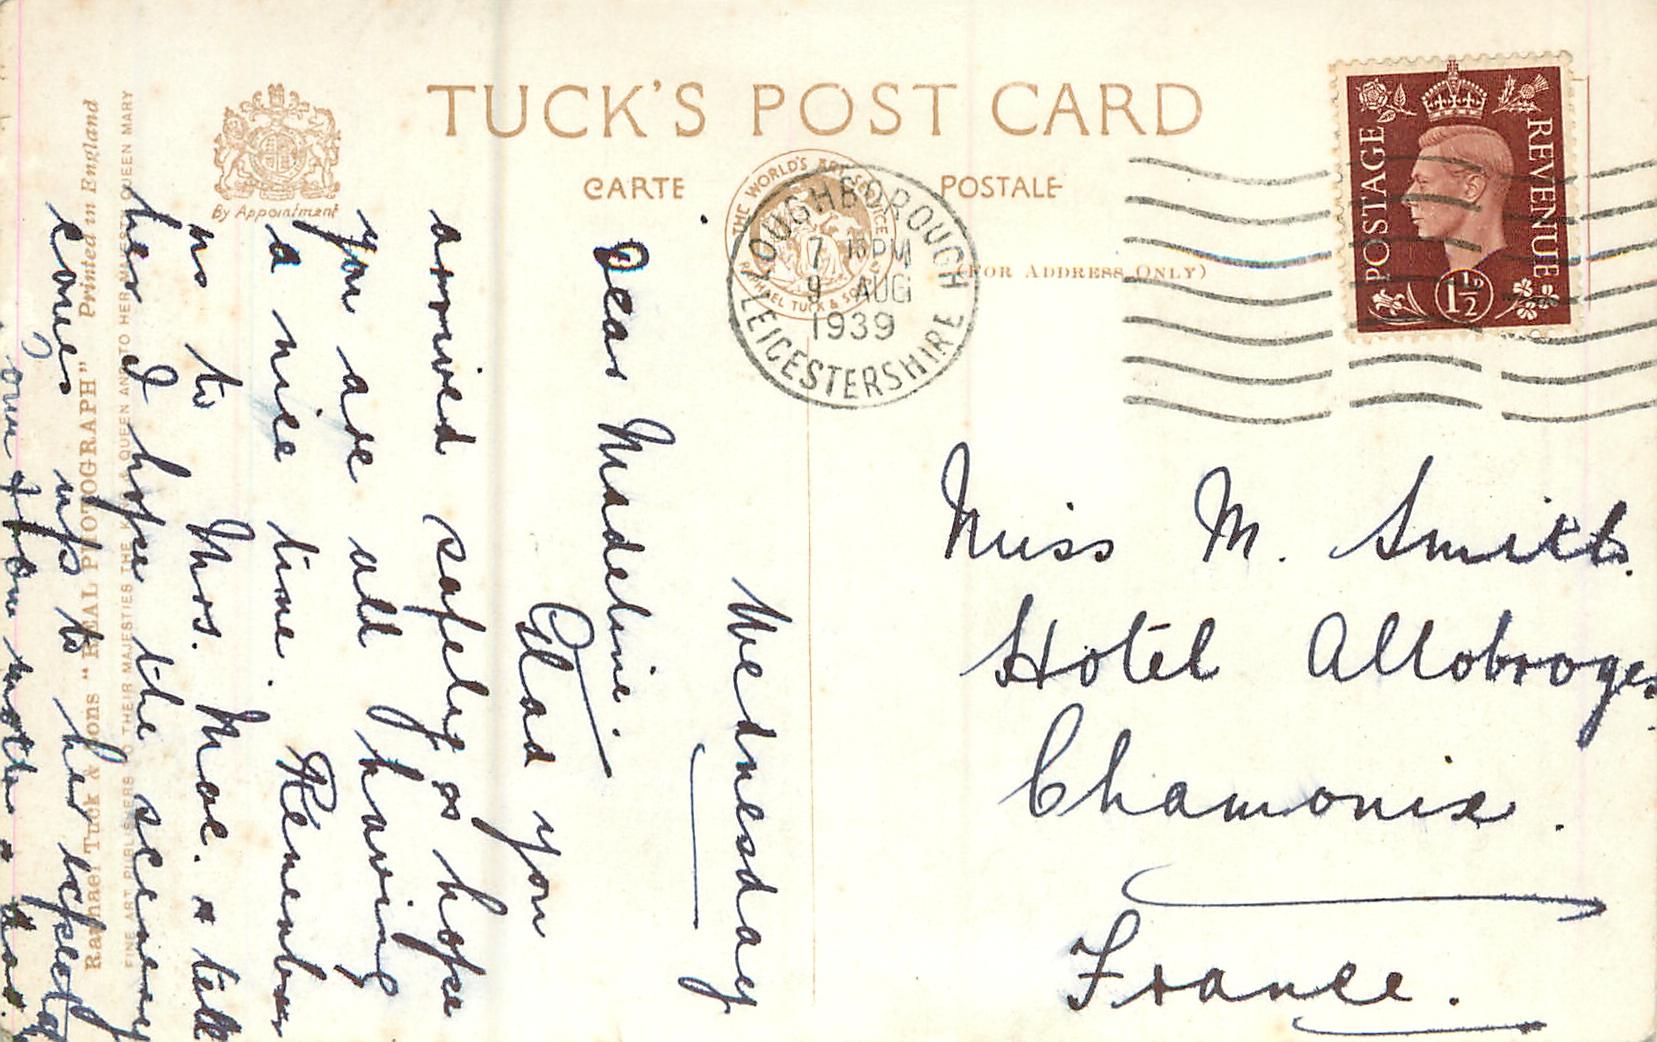 TUCK'S POST CARD
CARTE POSTALE
(FOR ADDRESS ONLY)
By Appointment
THE WORLD'S ART SERVICE
RAPHAEL TUCK & SONS
LOUGHBOROUGH
7 15PM
9 AUG
1939
LEICESTERSHIRE
POSTAGE
REVENUE
1½
Wednesday
Dear Madeline.
Glad you
arrived safely & hope
you are all having
a nice time. Remember
us to Mrs. Moe. & tell
her I hope the scenery
comes up to her
Miss M. Smith.
Hotel Allobroges
Chamonix.
France.
Raphael Tuck & Sons "REAL PHOTOGRAPH" Printed in England
FINE ART PUBLISHERS TO THEIR MAJESTIES THE KING & QUEEN AND TO HER MAJESTY QUEEN MARY